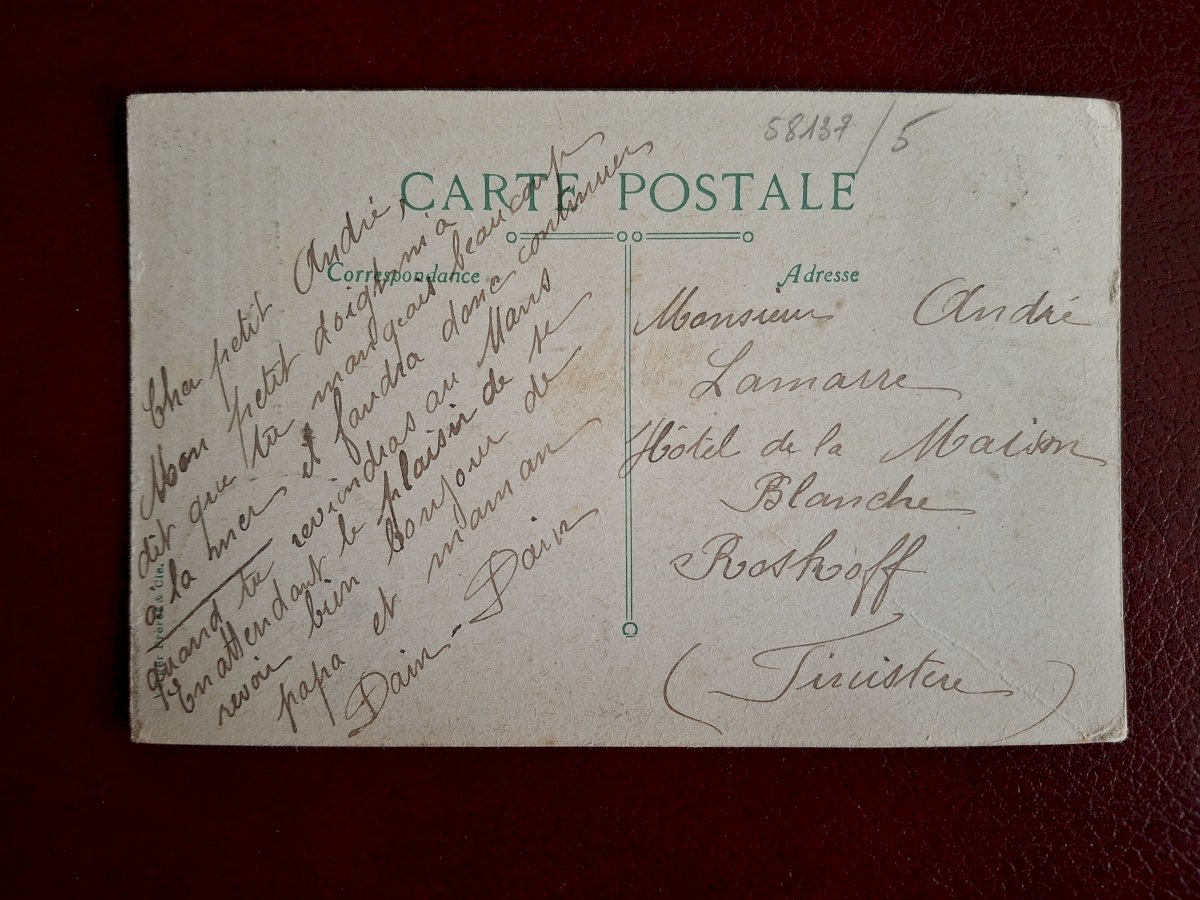 58137/5
CARTE POSTALE
Correspondance
Adresse
Cher petit André,
Mon petit doigt m'a
dit que tu mangeais beaucoup
à la mer il faudra donc continuer
quand tu reviendras au Mans
En attendant le plaisir de te
revoir bien bonjour de
papa et maman
Dain-Dain
Monsieur André
Lamarre
Hôtel de la Maison
Blanche
Roskoff
(Finistère)
Frères & Cie.